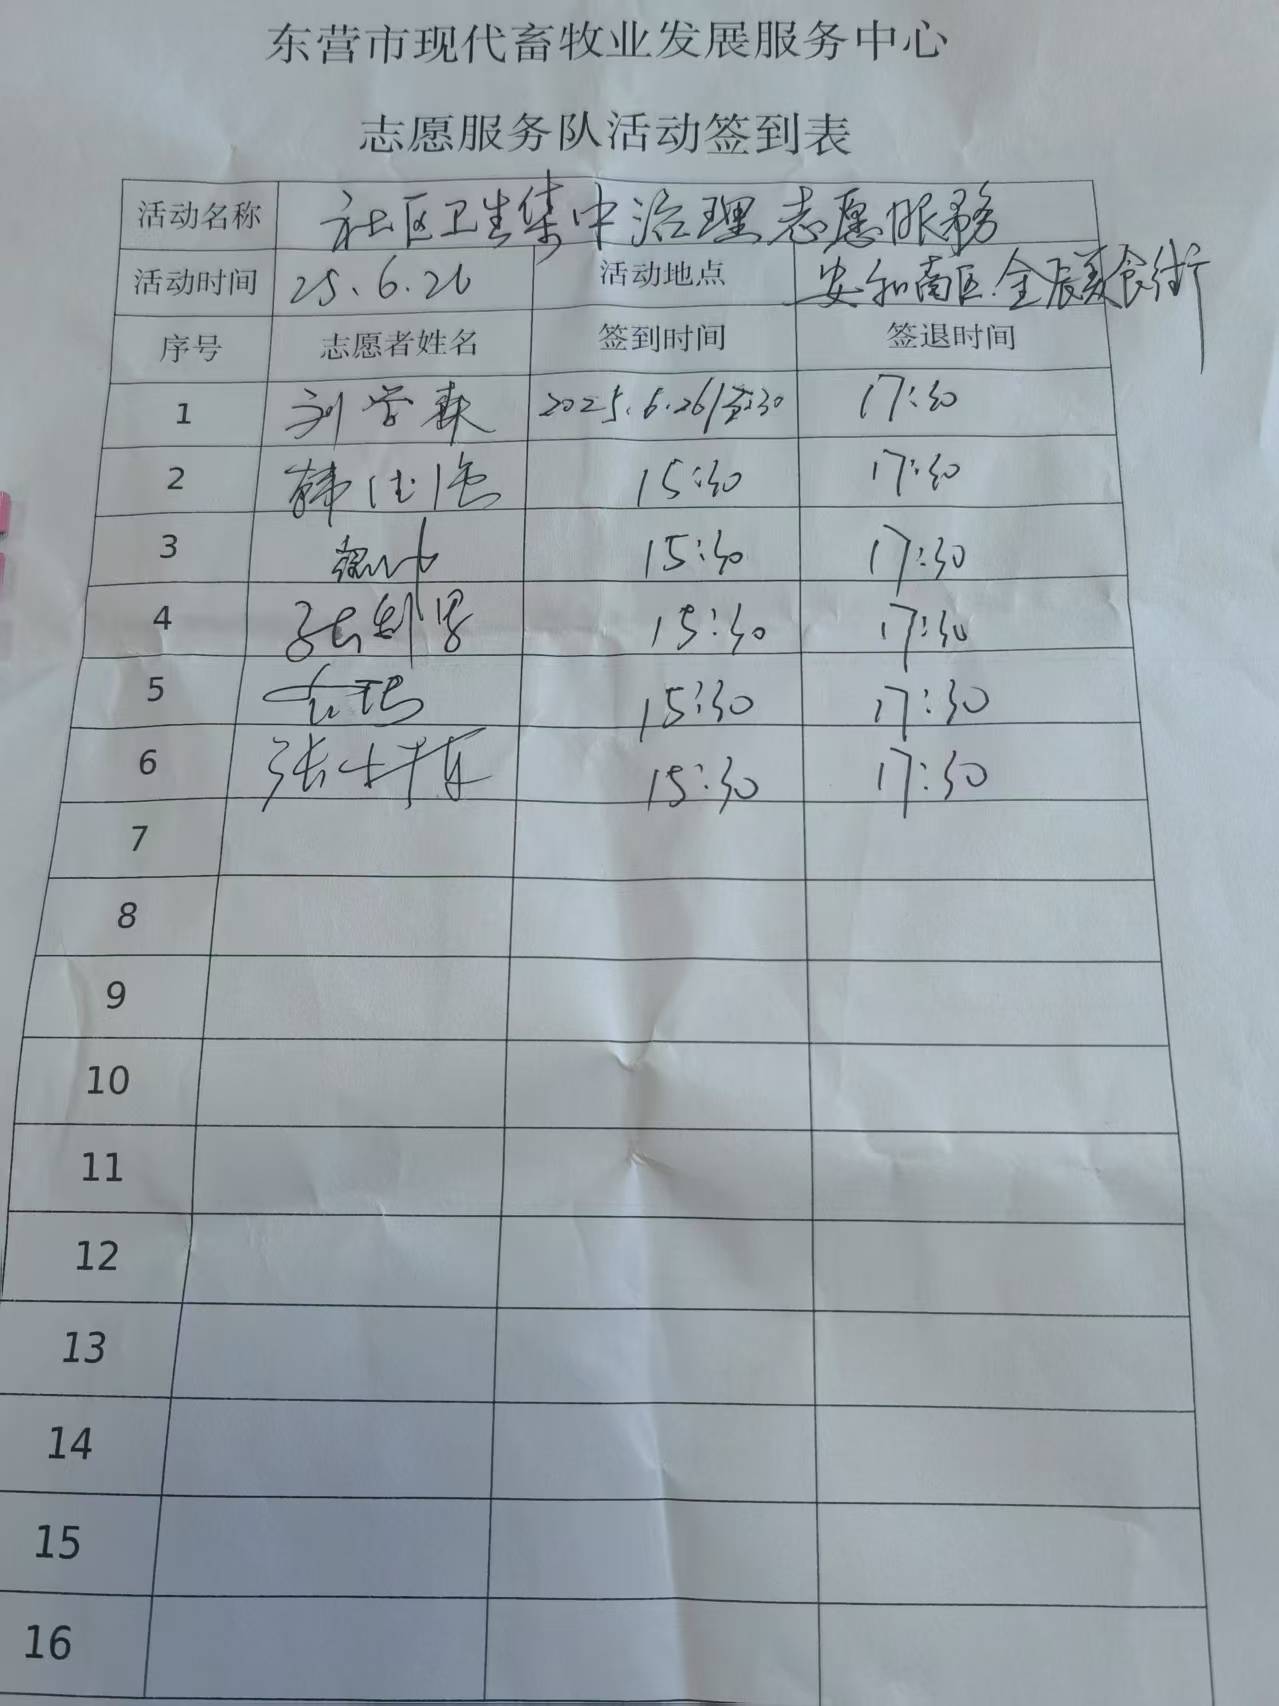 东营市现代畜牧业发展服务中心
志愿服务队活动签到表
活动名称 社区卫生集中治理志愿服务
活动时间 25.6.26 活动地点 安和南区.金辰美食街
序号 志愿者姓名 签到时间 签退时间
1 刘学森 2025.6.26/15:30 17:30
2 韩 15:30 17:30
3 15:30 17:30
4 15:30 17:30
5 15:30 17:30
6 张 15:30 17:30
7
8
9
10
11
12
13
14
15
16